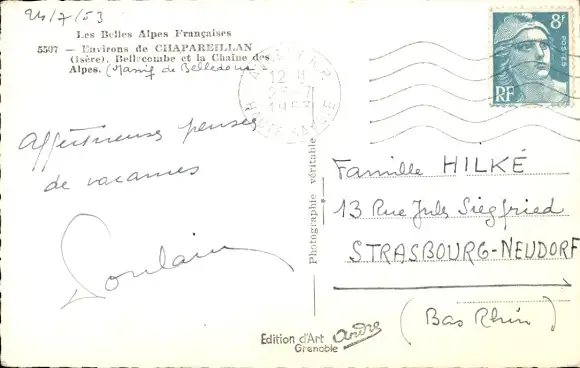 24/7/53
Les Belles Alpes Françaises
5507 — Environs de CHAPAREILLAN
(Isère), Bellecombe et la Chaîne des
Alpes. (Massif de Belledonne)
Affectueuses pensées
de vacances
Poulain
Photographie véritable
12 H
25-7
1953
8F
POSTES
RF
Famille HILKÉ
13 Rue Jules Siegfried
STRASBOURG-NEUDORF
(Bas Rhin)
Edition d'Art André
Grenoble